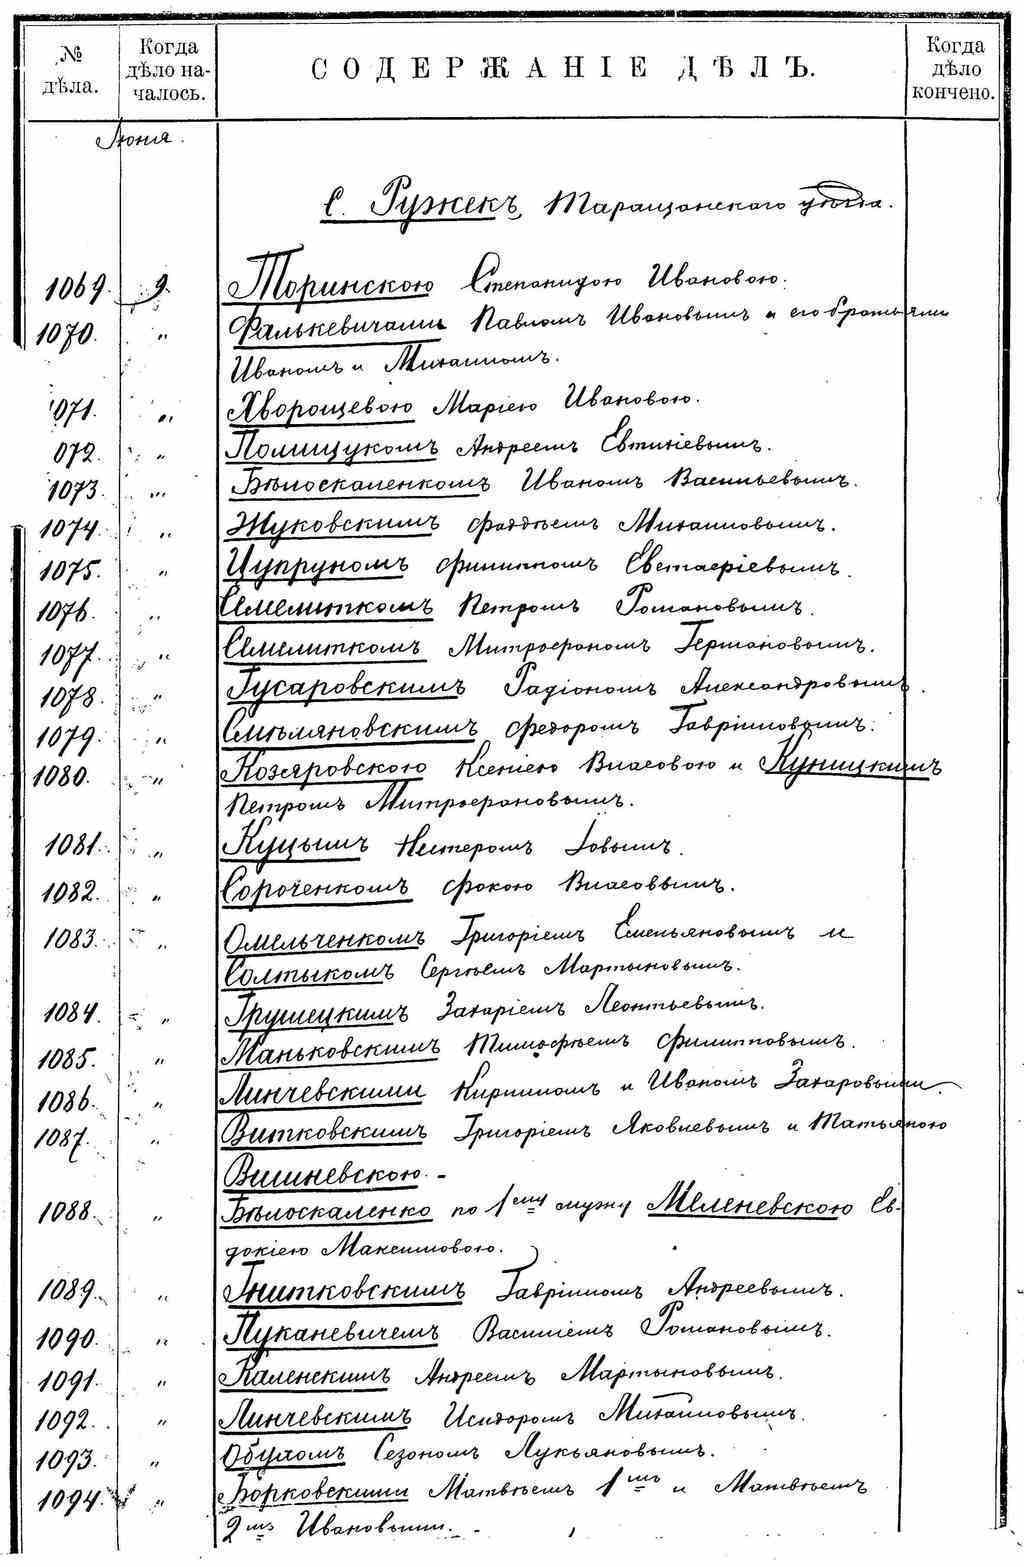 № дѣла. Когда дѣло началось. СОДЕРЖАНІЕ ДѢЛЪ. Когда дѣло кончено.
Іюня.
С. Ружекъ, Таращанскаго уѣзда.
1069. 9. Торинскою Степанидою Ивановою.
1070. " Фалькевичами Павломъ Ивановымъ и его братьями
Иваномъ и Михаиломъ.
1071. " Хворощевою Маріею Ивановою.
072. " Полищукомъ Андреемъ Евтихіевымъ.
1073. " Бѣлоскаленкомъ Иваномъ Васильевымъ.
1074. " Жуковскимъ Фаддѣемъ Михаиловымъ.
1075. " Цупрукомъ Филиппомъ Евстафіевымъ.
1076. " Семелиткомъ Петромъ Романовымъ.
1077. " Семелиткомъ Митрофаномъ Германовымъ.
1078. " Гусаровскимъ Радіономъ Александровымъ.
1079. " Смѣляновскимъ Федоромъ Гавріиловымъ.
1080. " Козяровскою Ксеніею Власовою и Куницкимъ
Петромъ Митрофановымъ.
1081. " Куцымъ Нестеромъ Іовымъ.
1082. " Сороченкомъ Фокою Власовымъ.
1083. " Омельченкомъ Григоріемъ Емельяновымъ и
Солтыкомъ Сергѣемъ Мартыновымъ.
1084. " Грушецкимъ Захаріемъ Леонтьевымъ.
1085. " Маньковскимъ Тимофѣемъ Филипповымъ.
1086. " Линчевскими Кириломъ и Иваномъ Захаровыми
1087. " Витковскимъ Григоріемъ Яковлевымъ и Татьяною
Вишневскою.-
1088. " Бѣлоскаленко по 1му мужу Меленевскою Ев-
докіею Максимовою.
1089. " Гнитковскимъ Гавріиломъ Андреевымъ.
1090. " Пуканевичемъ Василіемъ Романовымъ.
1091. " Каленскимъ Андреемъ Мартыновымъ.
1092. " Линчевскимъ Исидоромъ Михаиловымъ.
1093. " Обухомъ Сезономъ Лукьяновымъ.
1094. " Борковскими Матвѣемъ 1мъ и Матвѣемъ
2мъ Ивановыми.-